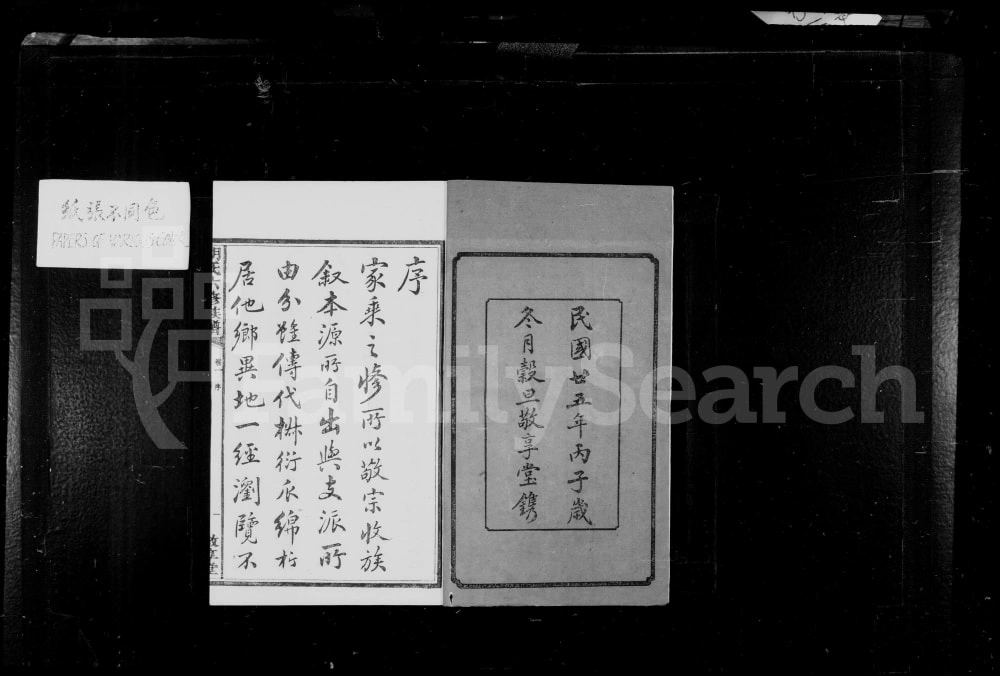 紙張不同色
PAPERS OF VARIOUS COLORS
民國廿五年丙子歲
冬月穀旦敬享堂鐫
序
家乘之修所以敬宗收族
叙本源所自出與支派所
由分雖傳代椒衍瓜綿析
居他鄉異地一經瀏覽不
氏六修族譜
卷一 序
一
敬享堂
FamilySearch